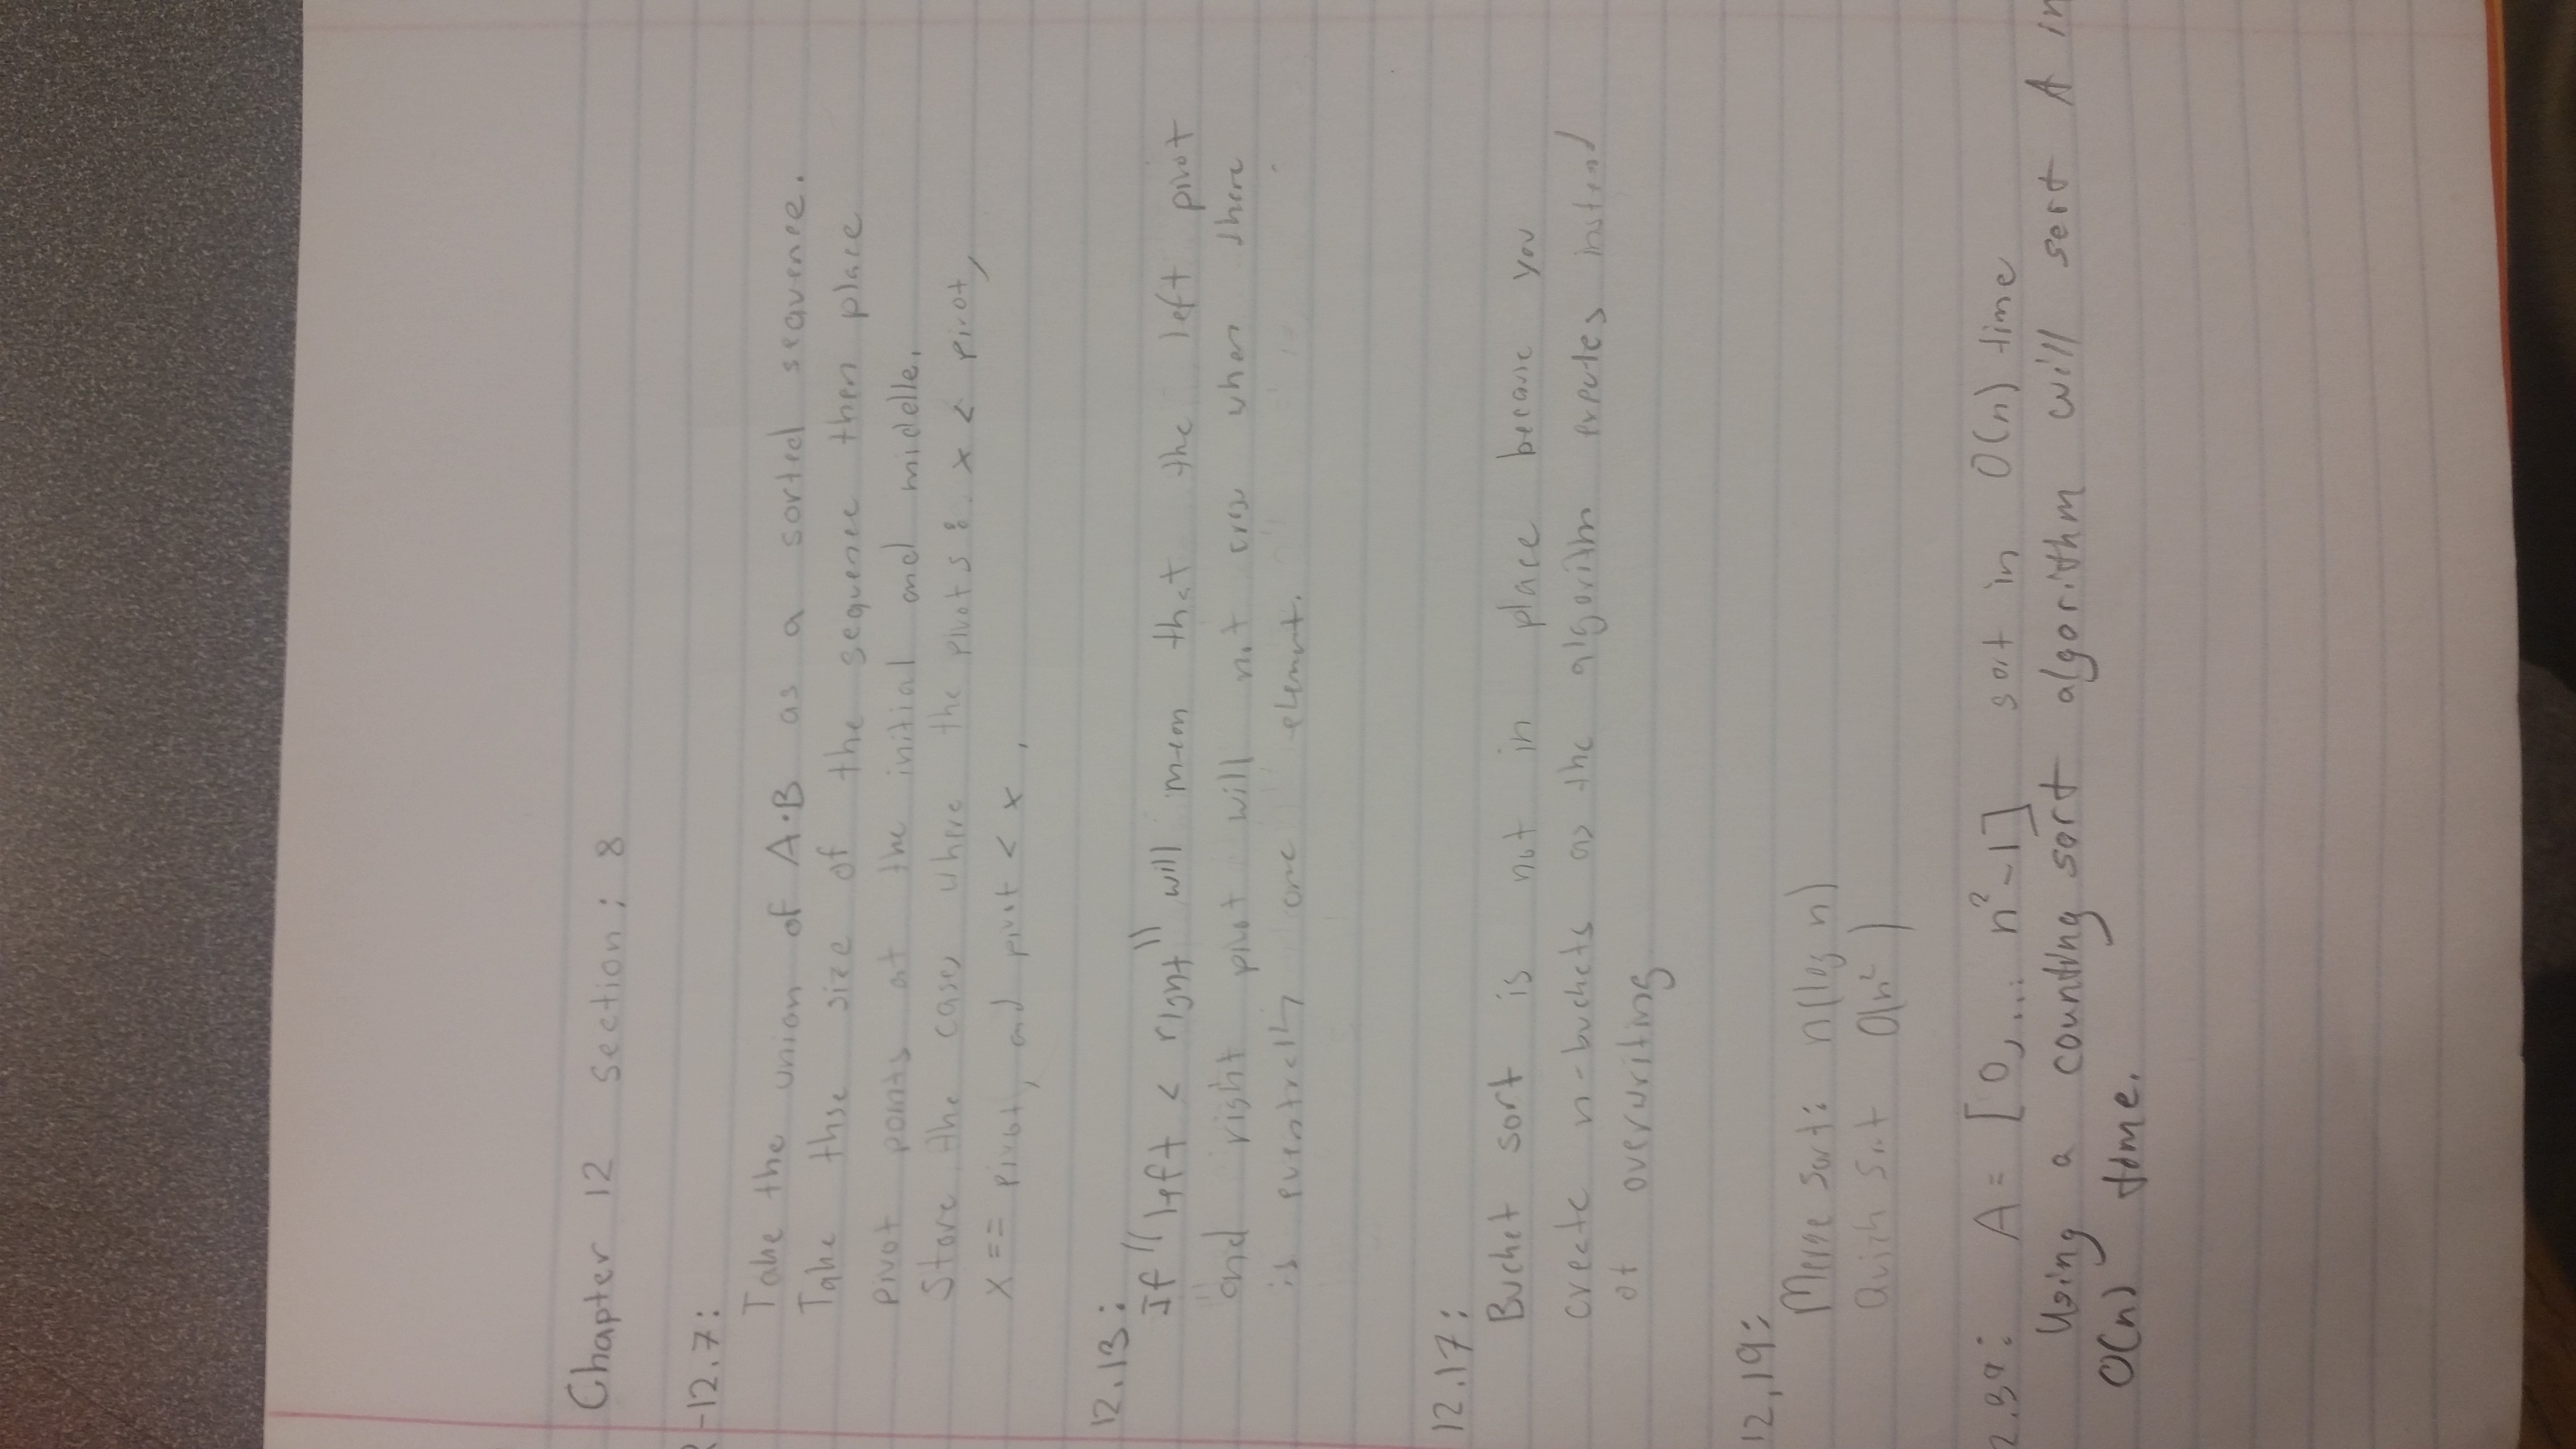 Chapter 12 section: 8
R-12.7:
Take the union of A·B as a sorted sequence.
Take thse size of the sequence then place
pivot points at the initial and midelle.
Store the cases where the pivots: x < pivot,
x == pivot, and pivot < x.
12.13:
If "left < right" will mean that the left pivot
and right pivot will not cross when there
is eventrally one element.
12.17:
Bucket sort is not in place because you
create n-buckets as the algorithm exeutes instead
of overwriting
12,19:
Merge Sort: n(log n)
Quick Sort O(n² )
2.39: A = [0,... n²-1] sort in O(n) time
Using a counting sort algorithm will sort A in
O(n) time.